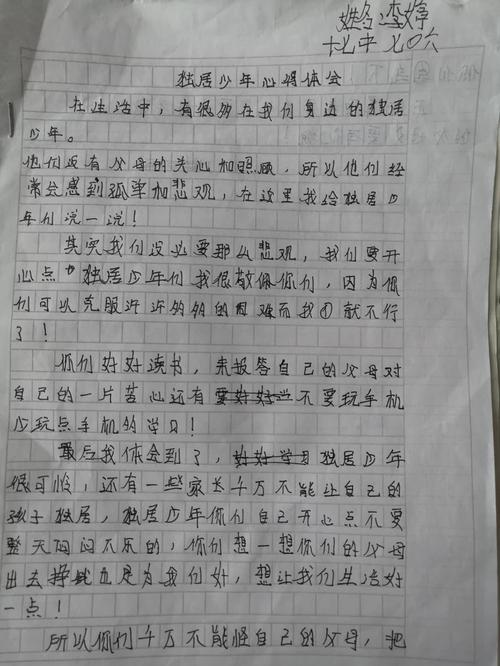 姓名:李婷
十七中 七0六
独居少年心得体会
在生活中，有很多在我们身边的独居
少年。
他们没有父母的关心和照顾，所以他们经
常会感到孤单和悲观，在这里我给独居少
年们说一说！
其实我们没必要那么悲观，我们要开
心点，独居少年们我很敬佩你们，因为你
们可以克服许许多多的困难而我就不行
了！
你们好好读书，来报答自己的父母对
自己的一片苦心还有要好好学不要玩手机
少玩点手机多学习！
最后我体会到了，好好学习独居少年
很可怜，还有一些家长千万不能让自己的
孩子独居，独居少年你们自己开心点不要
整天闷闷不乐的，你们想一想你们的父母
出去挣钱也是为我们好，想让我们生活好
一点！
所以你们千万不能怪自己的父母，把